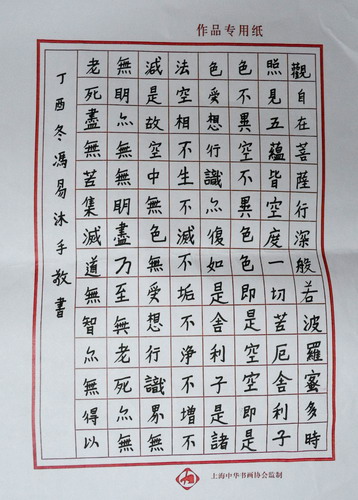 作品专用纸
觀自在菩薩行深般若波羅蜜多時
照見五蘊皆空度一切苦厄舍利子
色不異空不異色色即是空空即是
色受想行識亦復如是舍利子是諸
法空相不生不減不垢不淨不增不
減是故空中無色無受想行識界無
無明亦無無明盡乃至無老死亦無
老死盡無苦集減道無智亦無得以
丁酉冬馮易沐手敬書
上海中华书画协会监制